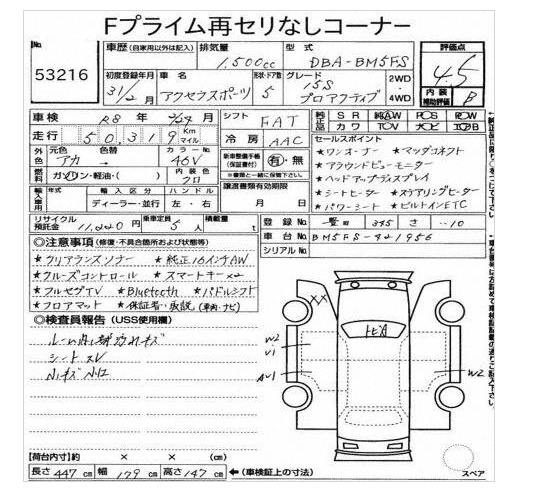 Fプライム再セリなしコーナー
No.
53216
車歴 (自家用以外は記入)
排気量
1,500cc
型式
DBA-BM5FS
評価点
4.5
内装補助評価
B
初度登録年月
31/2月
車名
アクセラスポーツ
形状・ドア数
5
グレード
15S
プロアクティブ
2WD
・
4WD
車検
R8年
月
シフト
FAT
純正品
SR
AW
PS
PW
カワ
TV
ナビ
エアB
走行
50,319
Km
マイル
冷房
AAC
セールスポイント
★ワンオーナー ★マツダコネクト
★アラウンドビューモーター
★ヘッドアップディスプレイ
★シートヒーター ★ステアリングヒーター
★パワーシート ★ビルトインETC
外色
元色
色替
アカ→
カラーNo.
46V
新車整備手帳
(保証書付)
有・無
燃料
ガソリン・軽油・( )
内装色
クロ
輸入車
年式
輸入区分
ディーラー・並行
ハンドル
左・右
譲渡書類有効期限
月 日
リサイクル預託金
11,220円
乗車定員
5人
積載量
t
登録No.
345 さ ・・10
車台No.
BM5FS-421956
シリアルNo.
◎注意事項 (修復・不具合箇所および状態等)
★クリアランスソナー ★純正16インチAW
★クルーズコントロール ★スマートキー×2
★フルセグTV ★Bluetooth ★パドルシフト
★フロアマット ★保証書・取説(車両・ナビ)
◎検査員報告 (USS使用欄)
シートスレ
小キズ小凹
XX
トビA
W2
U1
AU1
W2
【荷台内寸】約 × × (cm)
長さ 447 cm 幅 179 cm 高さ 147 cm ←(車検証上の寸法)
スペア